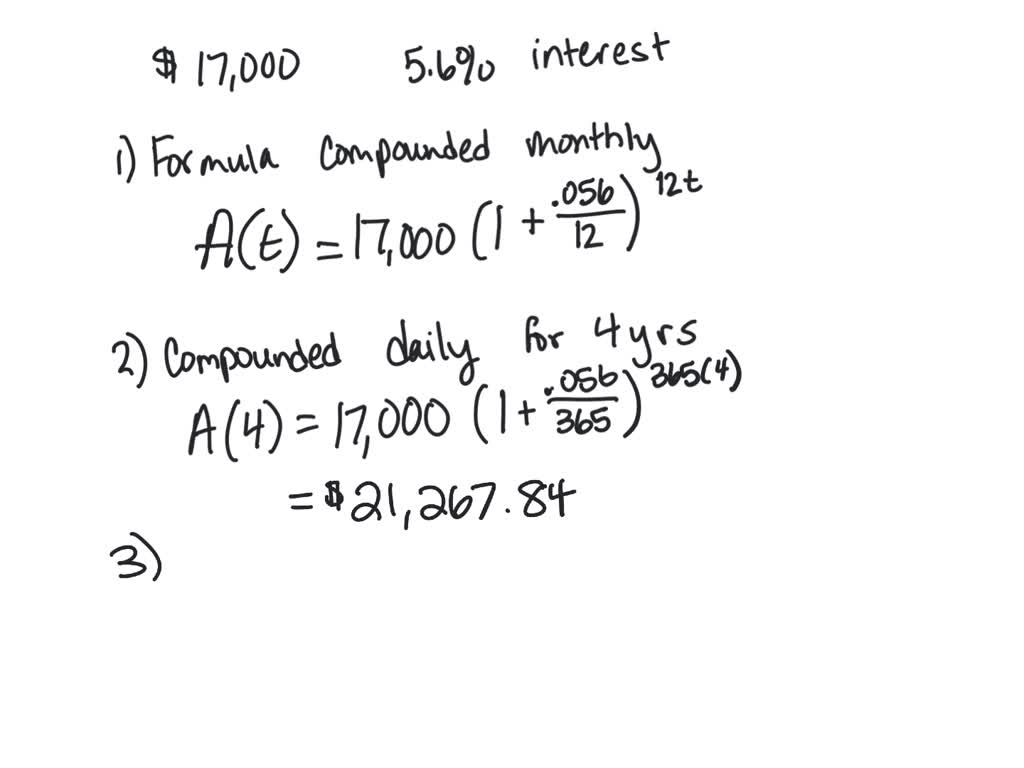 $ 17,000 5.6% interest
1) Formula compounded monthly
A(t) = 17,000 (1 + .056/12)^12t
2) Compounded daily for 4 yrs
A(4) = 17,000 (1 + .056/365)^365(4)
= $21,267.84
3)